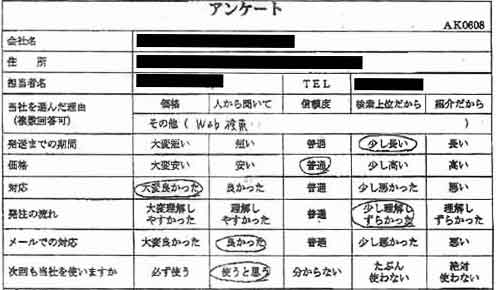 アンケート
AK0608
会社名
住 所
担当者名 TEL
当社を選んだ理由 (複数回答可) 価格 人から聞いて 信頼度 検索上位だから 紹介だから
その他 ( Web 検索 )
発送までの期間 大変短い 短い 普通 少し長い 長い
価格 大変安い 安い 普通 少し高い 高い
対応 大変良かった 良かった 普通 少し悪かった 悪い
発注の流れ 大変理解しやすかった 理解しやすかった 普通 少し理解しずらかった 理解しずらかった
メールでの対応 大変良かった 良かった 普通 少し悪かった 悪い
次回も当社を使いますか 必ず使う 使うと思う 分からない たぶん使わない 絶対使わない